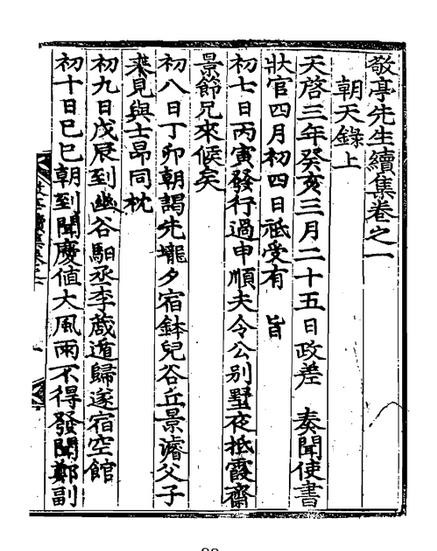 敬亭先生續集卷之一
朝天錄上
天啓三年癸亥三月二十五日政差 奏聞使書
狀官四月初四日祗受有 旨
初七日丙寅發行過申順夫令公別墅夜抵霞齋
景節兄來候矣
初八日丁卯朝謁先壠夕宿鉢兒谷丘景濬父子
來見與士昻同枕
初九日戊辰到幽谷馹丞李蕆遁歸遂宿空館
初十日己巳朝到聞慶値大風雨不得發聞鄭副